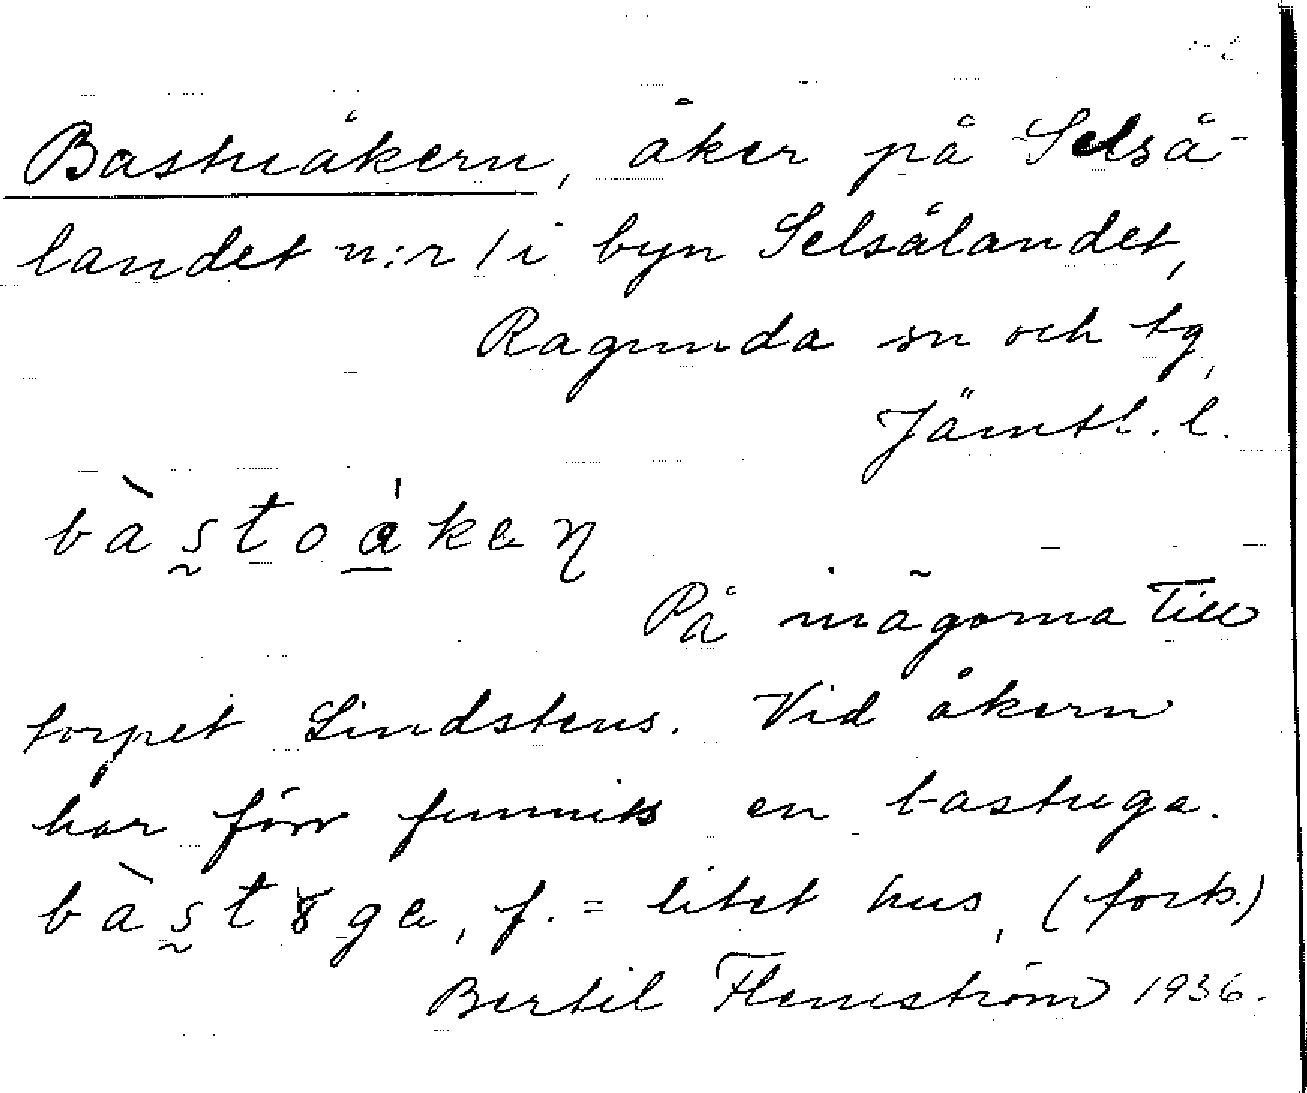 Bastuåkern, åker på Selså-
landet n:r 1 i byn Selsålandet,
Ragunda sn och tg,
Jämtl. l.
bàstoåkaɳ
På inägorna till
torpet Lindstens. Vid åkern
har förr funnits en bastuga.
bàstɤga, f. = litet hus, (fortk.)
Bertil Flemström 1936.